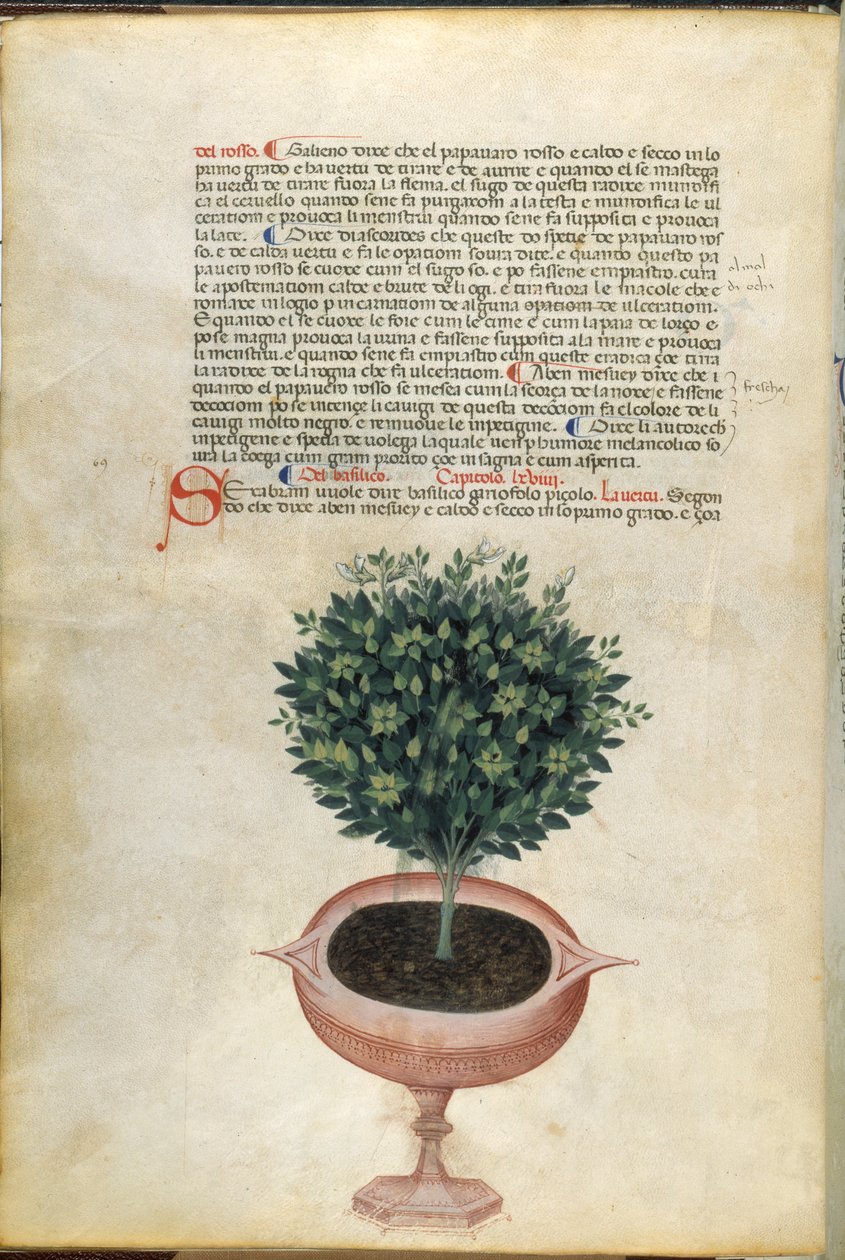 del rosso. Galieno dixe che el papavaro rosso e caldo e secco in lo
primo grado e ha vertu de tirare e de aurire e quando el se mastega
ha vertu de tirare fuora la flema. el sugo de questa radixe mundifi
ca el cervello quando sene fa purgaxom a la testa e mundifica le ul
ceratiom e provoca li menstrui quando sene fa supposita e provoca
la late. Dixe diascorides che queste do spetie de papavaro ros
so. e de calda vertu e fa le opatiom sovra dite. e quando questo pa
pavero rosso se cuoxe cum el sugo so. e po fassene empiastro. cura
le apostematiom calde e brute de li ogi. e tira fuora le macole che e
romaxe in logio p in carnatiom de alguna opatiom de ulceratiom.
E quando el se cuoxe le foie cum le cime e cum la paia de lorço e
po se magna provoca la urina e fassene supposita a la mare e provoca
li menstrui. e quando sene fa empiastro cum queste eradica çoe tira
la radixe de la rogna che fa ulceratiom. Aben mesuey dixe che i
quando el papavero rosso se mesea cum la scorça de la noxe e fassene
decociom po se intençe li cavigi de questa decociom fa el colore de li
cavigi molto negro. e remuove le inpetigine. Dixe li autore ch
inpetigene e specia de volega la quale ven p humore melancolico so
vra la coega cum gram prorito çoe in sagna e cum asperita.
Del basilico. Capitolo. lxviiii.
Serabram vuole dire basilico gariofolo piçolo. La vertu. Segon
do che dixe aben mesuey e caldo e secco in lo primo grado. e çoa
al mal
di ochi
frescha
69